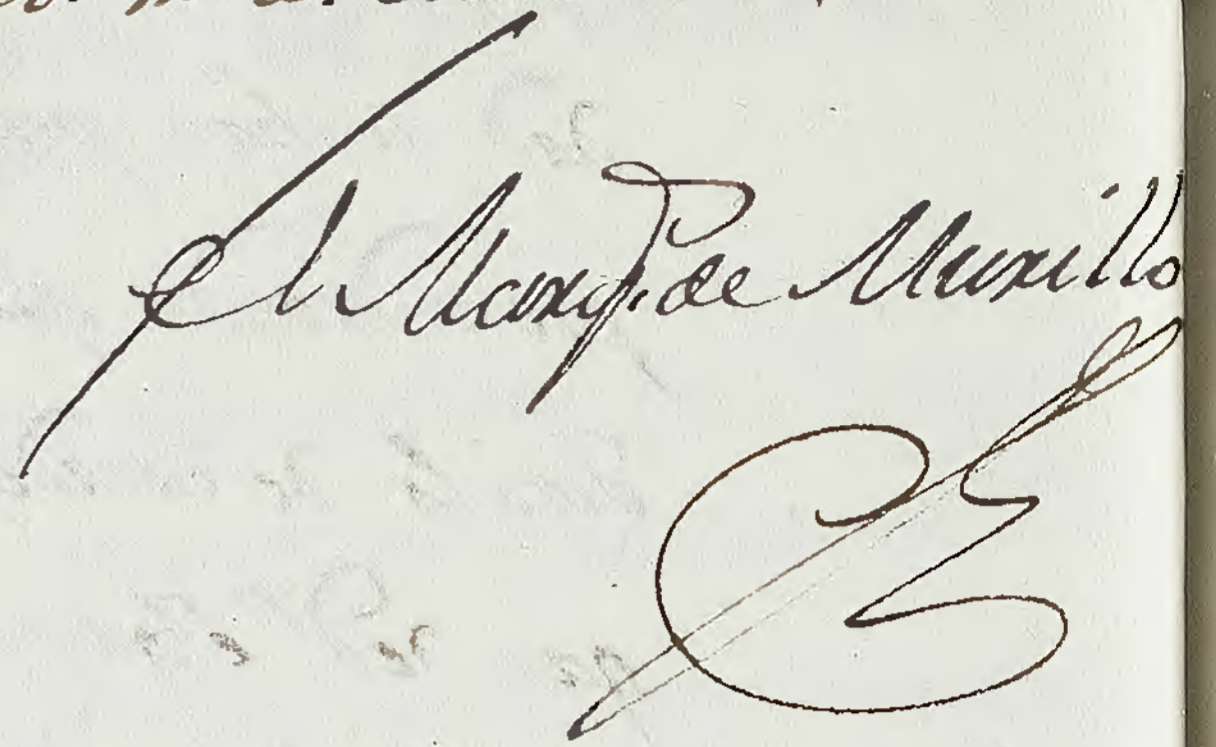 El Marq.s de Murillo